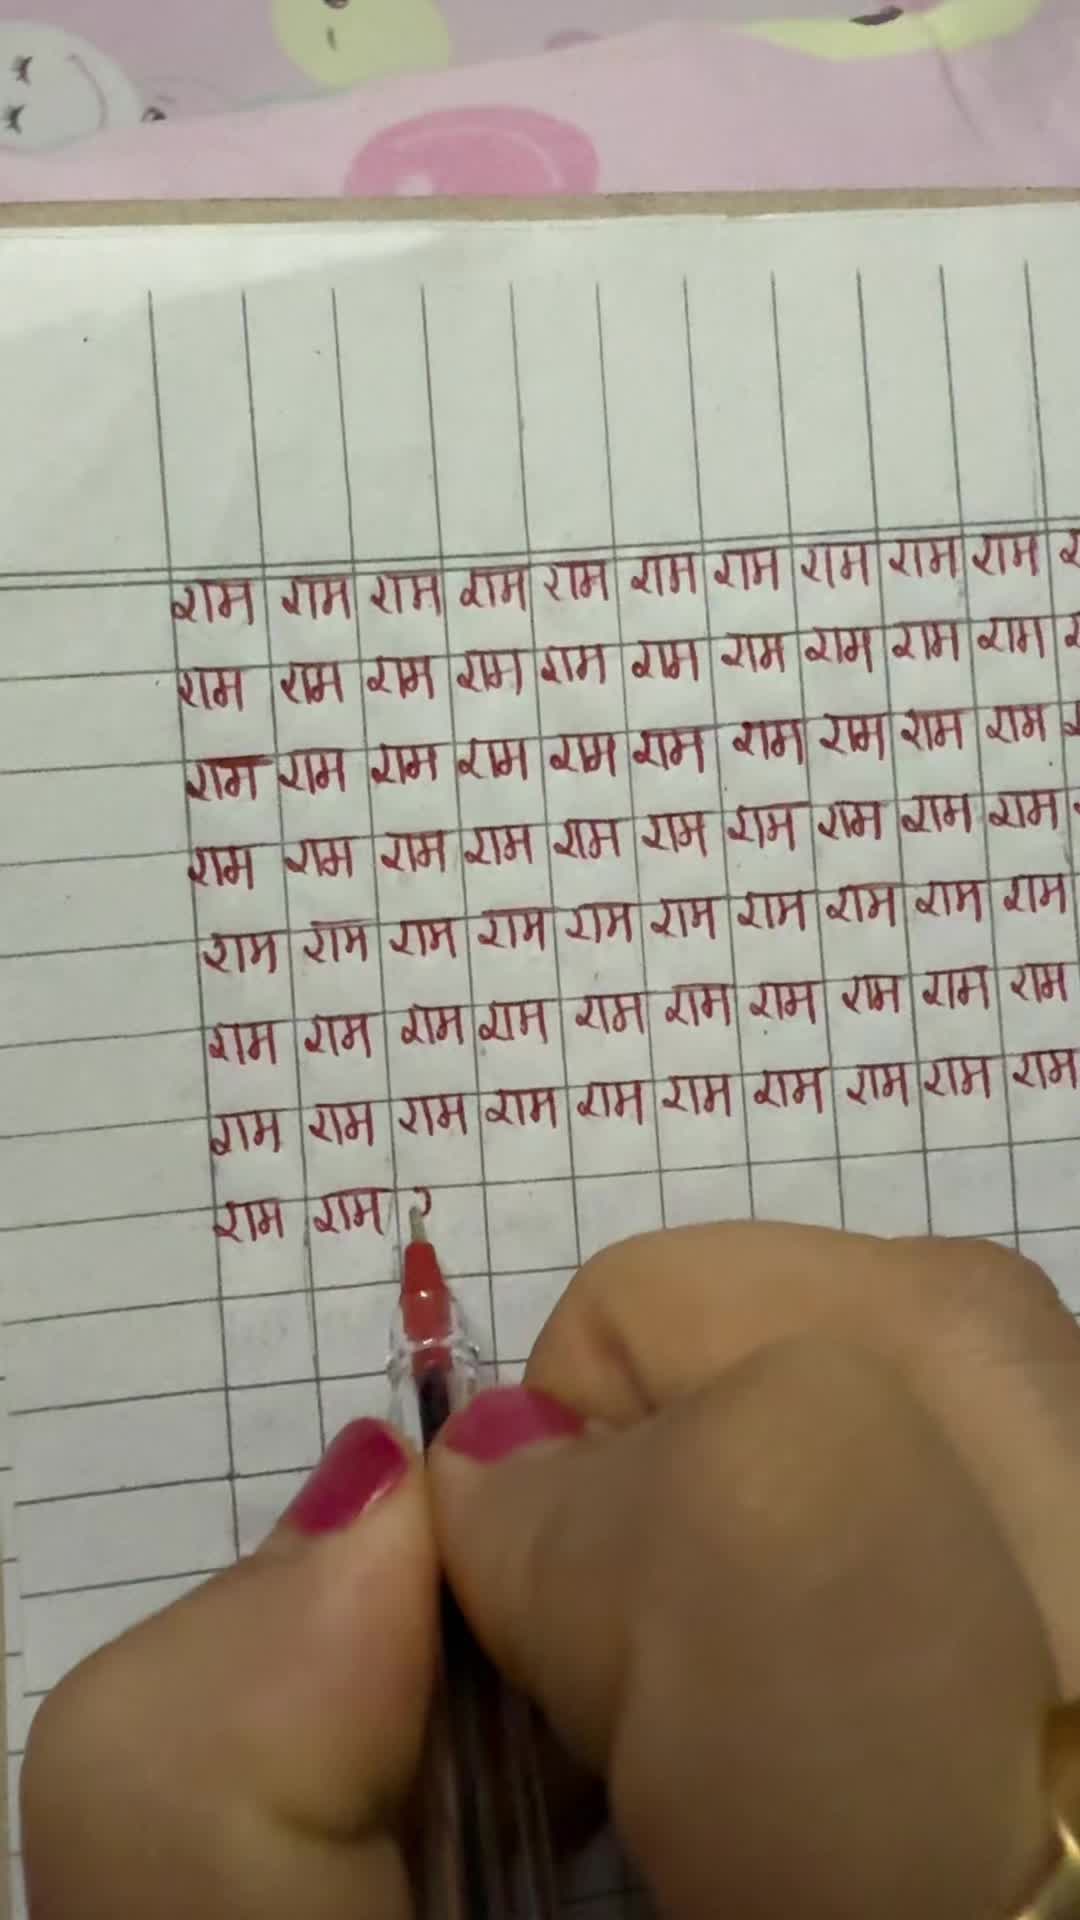 राम राम राम राम राम राम राम राम राम राम
राम राम राम राम राम राम राम राम राम राम
राम राम राम राम राम राम राम राम राम राम
राम राम राम राम राम राम राम राम राम राम
राम राम राम राम राम राम राम राम राम राम
राम राम राम राम राम राम राम राम राम राम
राम राम राम राम राम राम राम राम राम राम
राम राम